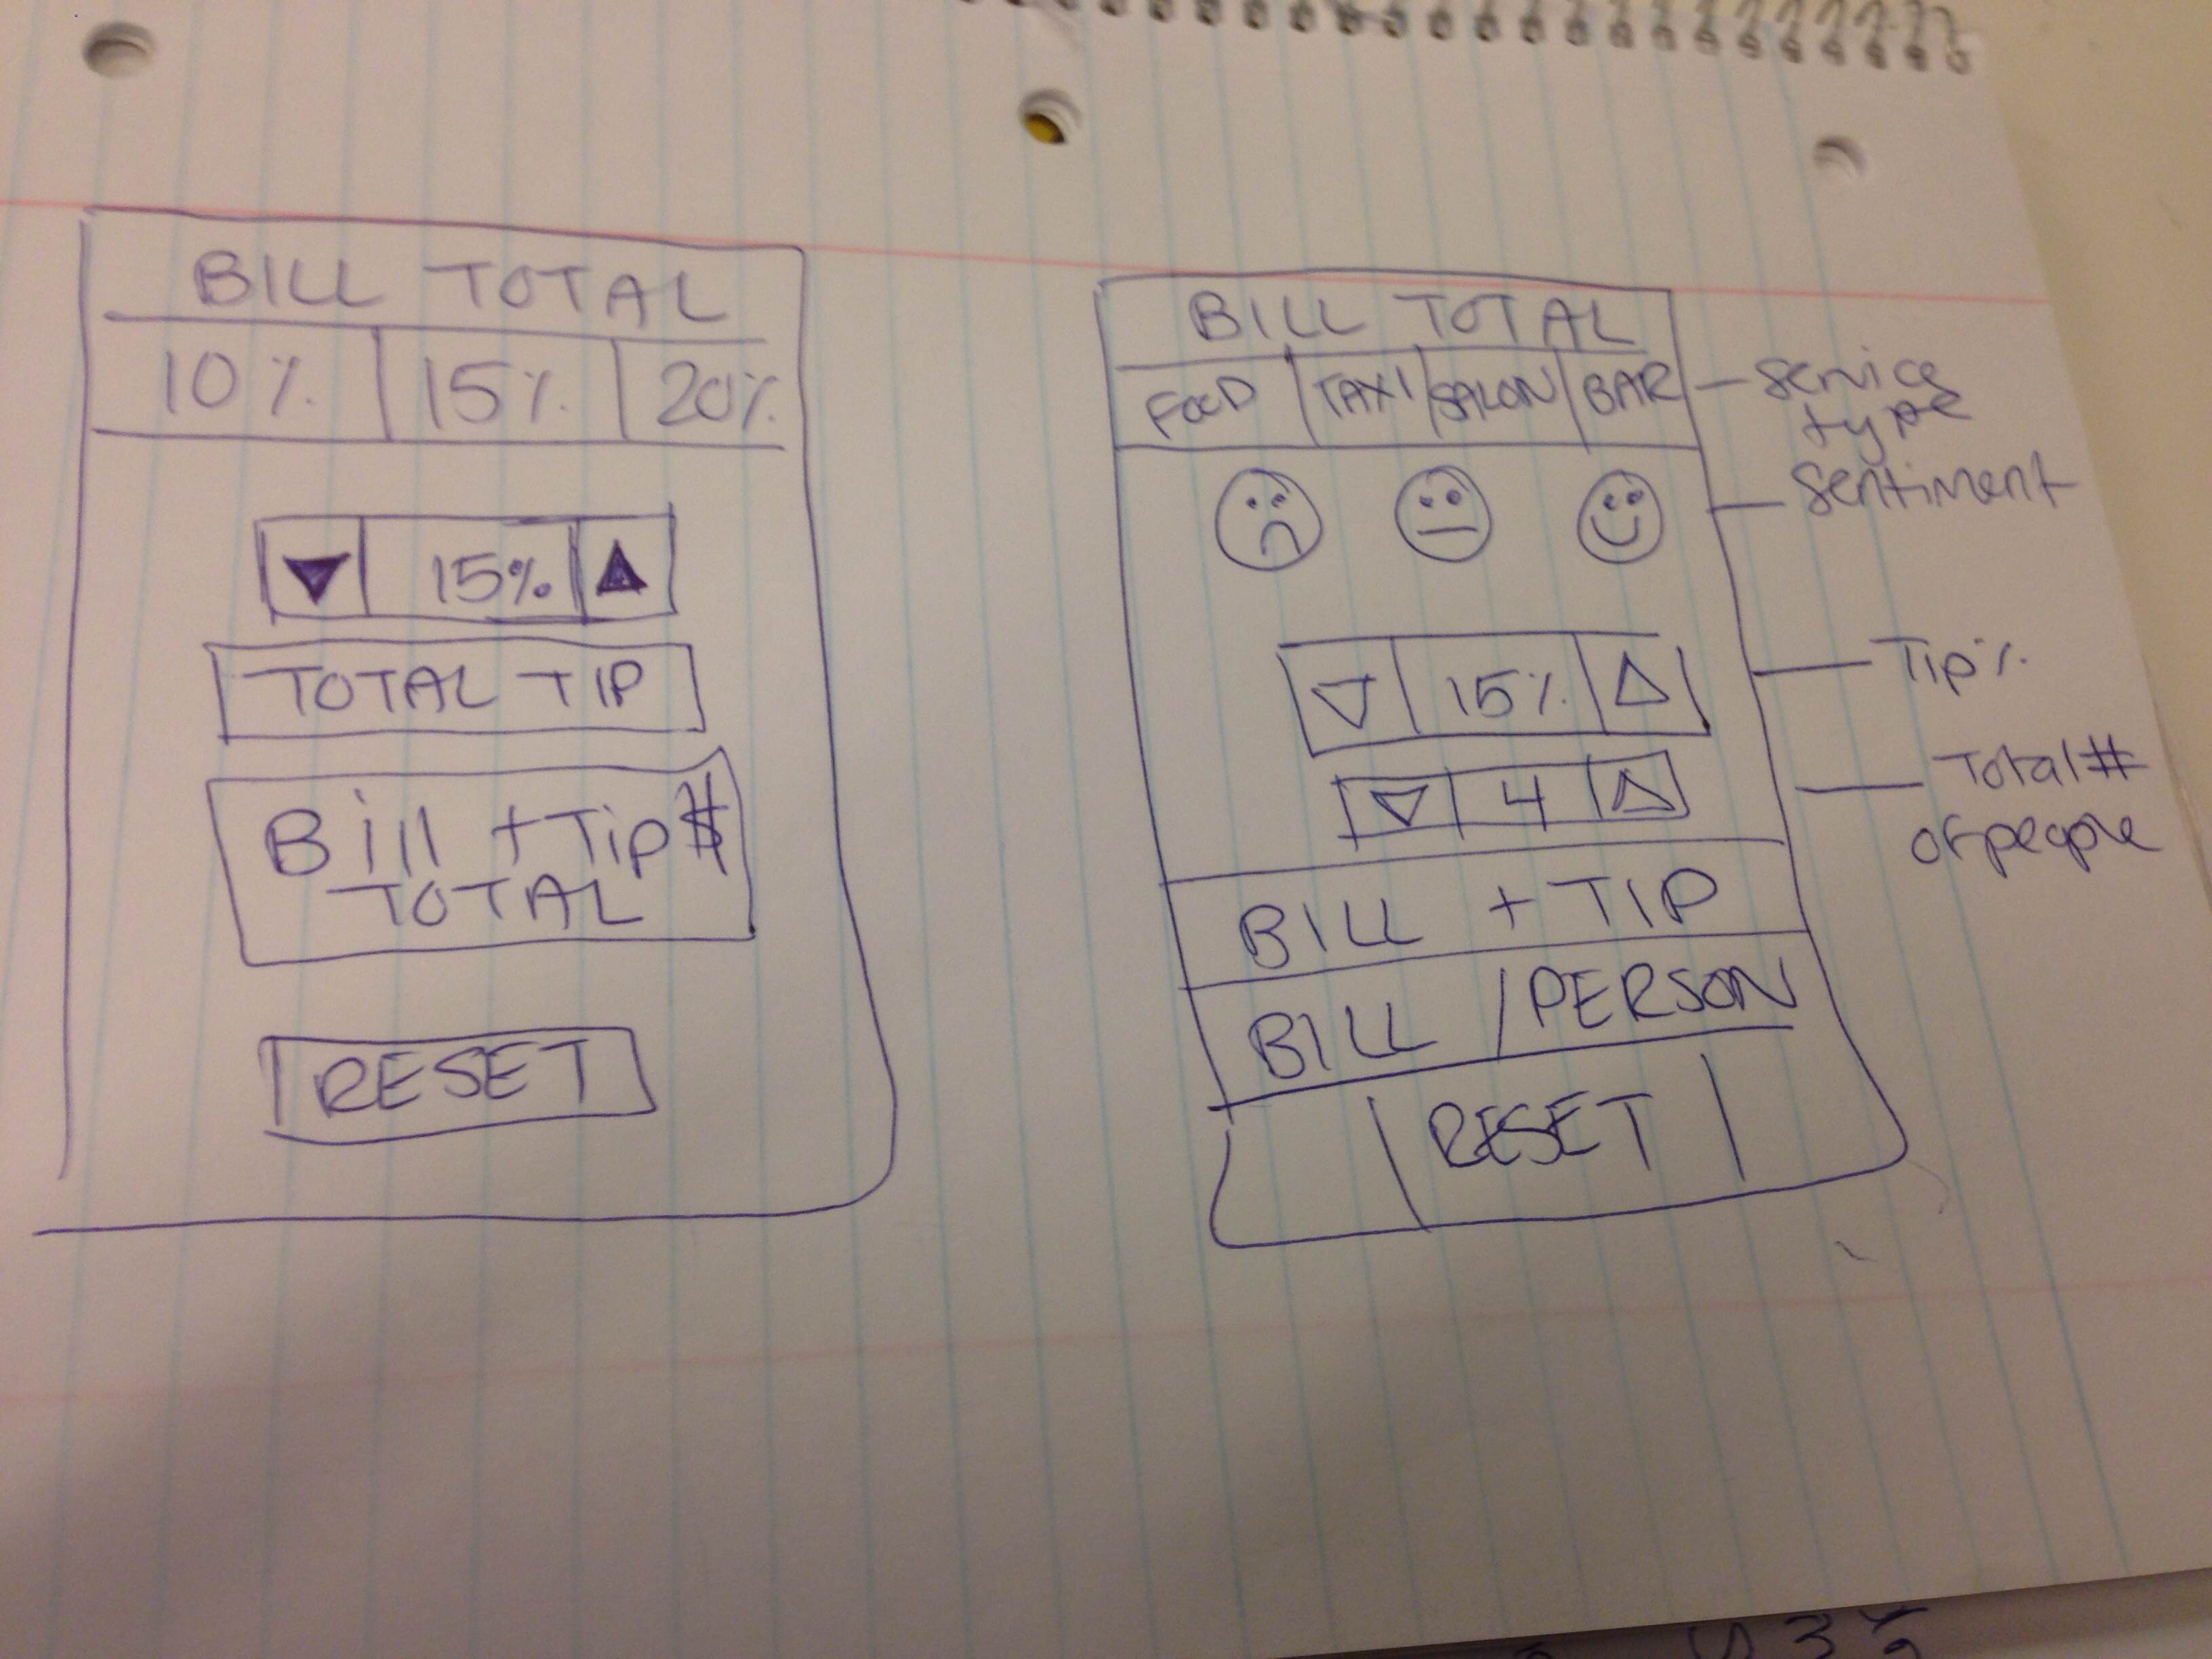 BILL TOTAL
10% 15% 20%
15%
TOTAL TIP
Bill + Tip $
TOTAL
RESET
BILL TOTAL
FOOD TAXI SALON BAR
service
type
sentiment
15%
Tip%
4
Total #
of people
BILL + TIP
BILL / PERSON
RESET